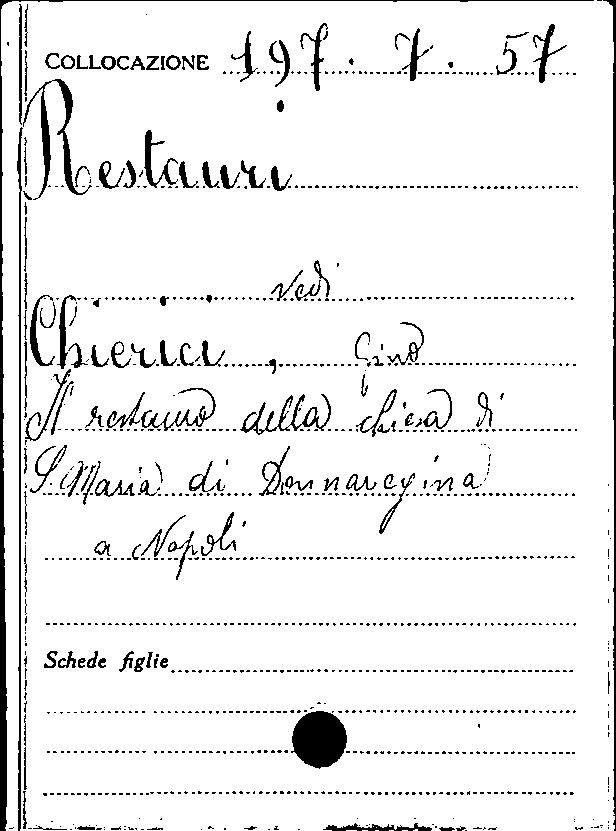 COLLOCAZIONE 197.7.57
Restauri
vedi
Chierici, Gino
Il restauro della chiesa di
S. Maria di Donnaregina
a Napoli
Schede figlie